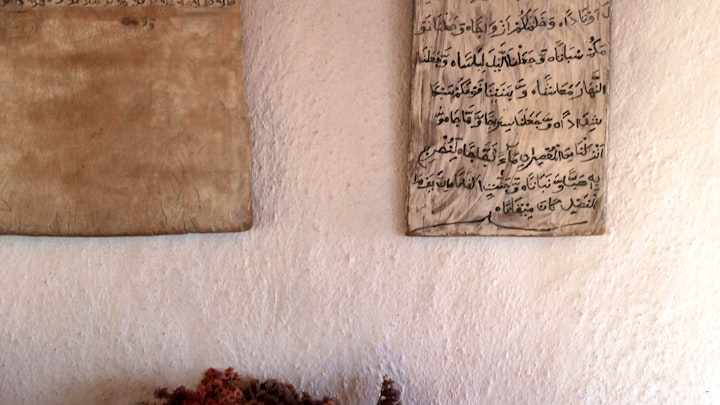 أوتادا ه وخلقنكم أزواجا ه وجعلنا نو
مكم سباتا ه وجعلنا اليل لباسا ه وجعلنا
النهار معاشا ه وبنينا فوقكم سبعا
شدادا ه وجعلنا سراجا وهاجا ه و
أنزلنا من المعصرت ماء ثجاجا ه لنخرج
به حبا ونباتا ه وجنت الفافا ه ان يوم ا
لفصل كان ميقاتا ه